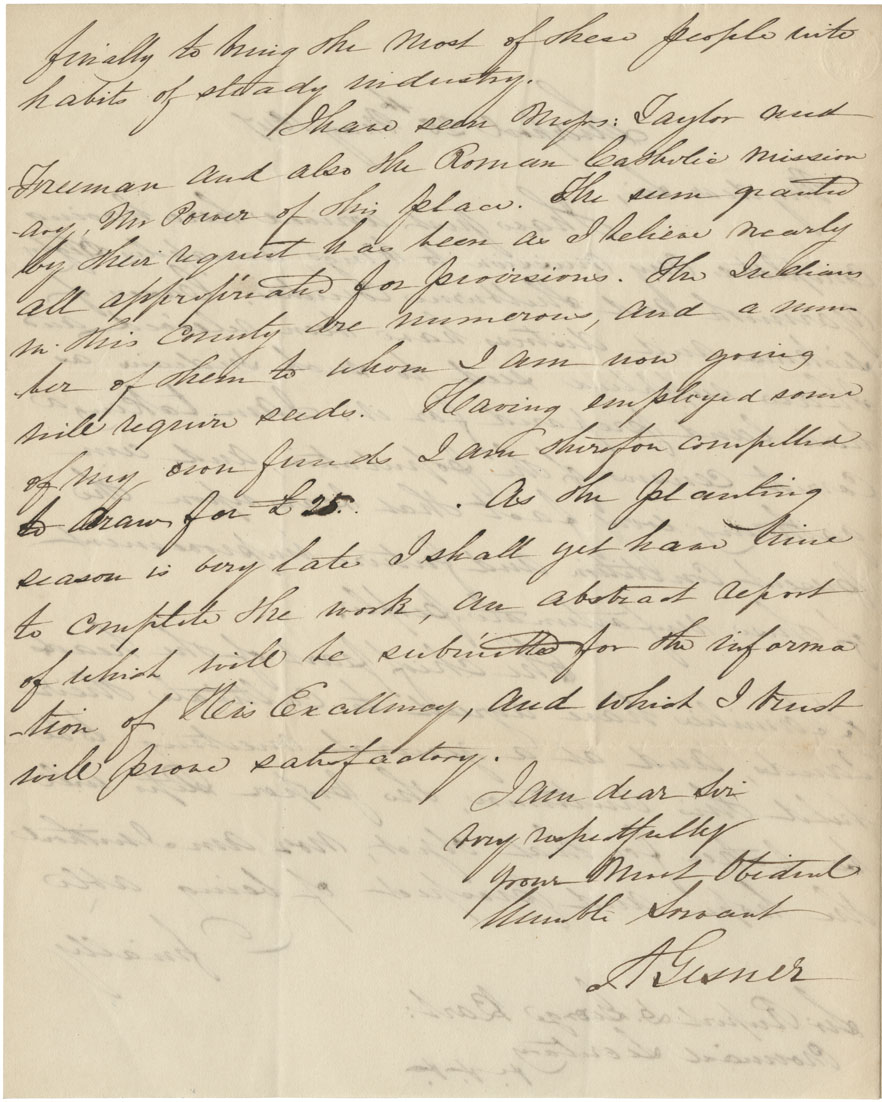 finally to bring the most of these people into
habits of steady industry.
I have seen Messrs: Taylor and
Freeman and also the Roman Catholic mission
-ary, Mr Power of this place. The sum granted
by their request has been as I believe nearly
all appropriated for provisions. The Indians
in this County are numerous, and a num
ber of them to whom I am now going
will require seeds. Having employed some
of my own funds I am therefore compelled
to draw for £ 25. . As the planting
season is very late I shall yet have time
to complete the work, an abstract report
of which will be submitted for the informa
-tion of His Excellency, and which I trust
will prove satisfactory.
I am dear Sir
very respectfully
your Most Obedient
Humble Servant
A Gesner